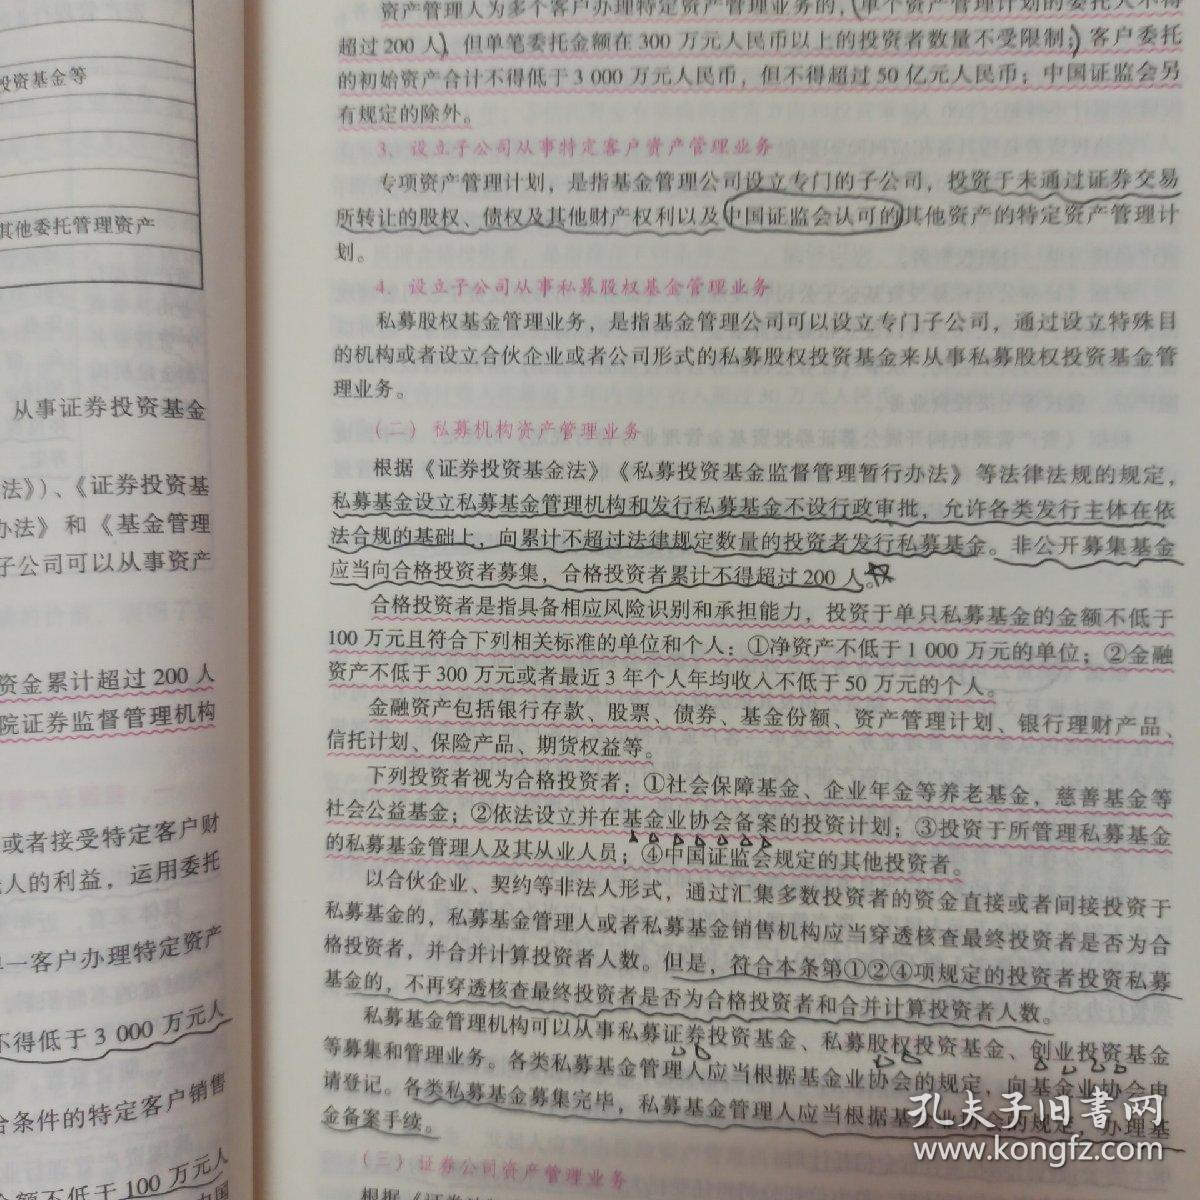 投资基金等
其他委托管理资产
从事证券投资基金
法》）、《证券投资基
办法》和《基金管理
子公司可以从事资产
资金累计超过200人
院证券监督管理机构
或者接受特定客户财
人的利益，运用委托
一客户办理特定资产
不得低于3 000万元人
合条件的特定客户销售
额不低于100万元人
资产管理人为多个客户办理特定资产管理业务的，（单个资产管理计划的委托人不得
超过200人），但单笔委托金额在300万元人民币以上的投资者数量不受限制；客户委托
的初始资产合计不得低于3 000万元人民币，但不得超过50亿元人民币；中国证监会另
有规定的除外。
3．设立子公司从事特定客户资产管理业务
专项资产管理计划，是指基金管理公司设立专门的子公司，投资于未通过证券交易
所转让的股权、债权及其他财产权利以及中国证监会认可的其他资产的特定资产管理计
划。
4．设立子公司从事私募股权基金管理业务
私募股权基金管理业务，是指基金管理公司可以设立专门子公司，通过设立特殊目
的机构或者设立合伙企业或者公司形式的私募股权投资基金来从事私募股权投资基金管
理业务。
（二）私募机构资产管理业务
根据《证券投资基金法》《私募投资基金监督管理暂行办法》等法律法规的规定，
私募基金设立私募基金管理机构和发行私募基金不设行政审批，允许各类发行主体在依
法合规的基础上，向累计不超过法律规定数量的投资者发行私募基金。非公开募集基金
应当向合格投资者募集，合格投资者累计不得超过200人。
合格投资者是指具备相应风险识别和承担能力，投资于单只私募基金的金额不低于
100万元且符合下列相关标准的单位和个人：①净资产不低于1 000万元的单位；②金融
资产不低于300万元或者最近3年个人年均收入不低于50万元的个人。
金融资产包括银行存款、股票、债券、基金份额、资产管理计划、银行理财产品、
信托计划、保险产品、期货权益等。
下列投资者视为合格投资者：①社会保障基金、企业年金等养老基金，慈善基金等
社会公益基金；②依法设立并在基金业协会备案的投资计划；③投资于所管理私募基金
的私募基金管理人及其从业人员；④中国证监会规定的其他投资者。
以合伙企业、契约等非法人形式，通过汇集多数投资者的资金直接或者间接投资于
私募基金的，私募基金管理人或者私募基金销售机构应当穿透核查最终投资者是否为合
格投资者，并合并计算投资者人数。但是，符合本条第①②④项规定的投资者投资私募
基金的，不再穿透核查最终投资者是否为合格投资者和合并计算投资者人数。
私募基金管理机构可以从事私募证券投资基金、私募股权投资基金、创业投资基金
等募集和管理业务。各类私募基金管理人应当根据基金业协会的规定，向基金业协会申
请登记。各类私募基金募集完毕，私募基金管理人应当根据基金业协会的规定，办理基
金备案手续。
（三）证券公司资产管理业务
孔夫子旧书网
www.kongfz.com